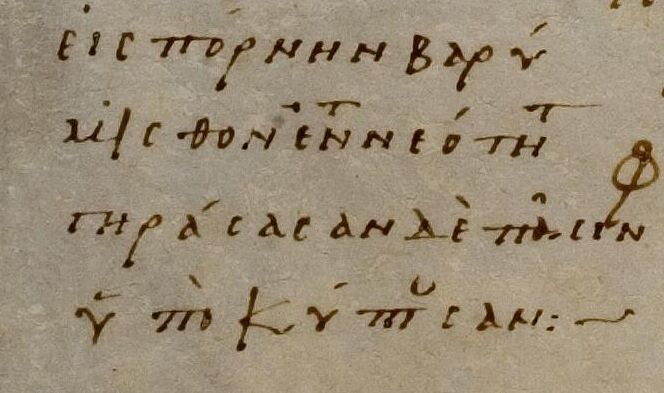 εἰς πόρνην βαρύ
μισθον ἐν τ νεότητ
γηράσασαν δὲ πᾶσιν
ὑποκύπτουσαν:~